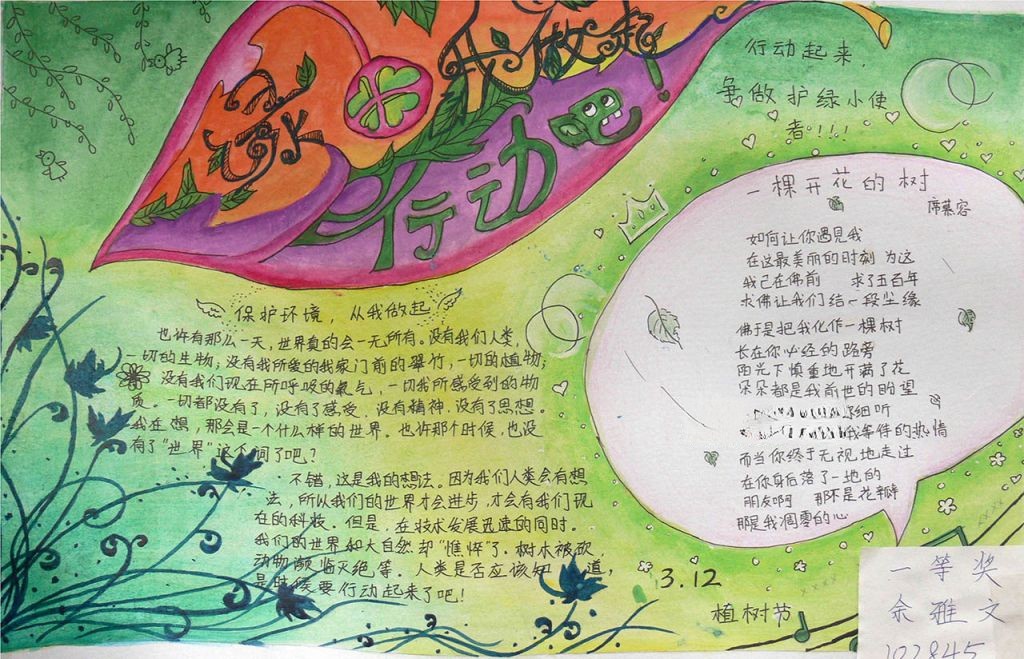 绿
我做起
行动吧!
行动起来,
争做护绿小使
者!!!
一棵开花的树
席慕容
如何让你遇见我
在这最美丽的时刻 为这
我已在佛前 求了五百年
求佛让我们结一段尘缘
佛于是把我化作一棵树
长在你必经的路旁
阳光下慎重地开满了花
朵朵都是我前世的盼望
细听
我等件的热情
而当你终于无视地走过
在你身后落了一地的
朋友啊 那不是花瓣
那是我凋零的心
保护环境,从我做起
也许有那么一天,世界真的会一无所有。没有我们人类,
一切的生物;没有我所爱的我家门前的翠竹,一切的植物;
没有我们现在所呼吸的氧气,一切我所感受到的物
质。一切都没有了,没有了感受、没有精神、没有了思想。
我在想,那会是一个什么样的世界。也许那个时候,也没
有了"世界"这个词了吧?
不错,这是我的想法。因为我们人类会有想
法,所以我们的世界才会进步,才会有我们现
在的科技。但是,在技术发展迅速的同时。
我们的世界和大自然却"憔悴"了。树木被砍,
动物濒临灭绝等。人类是否应该知道,
是时候要行动起来了吧!
3.12
植树节
一等奖
余雅文
102845